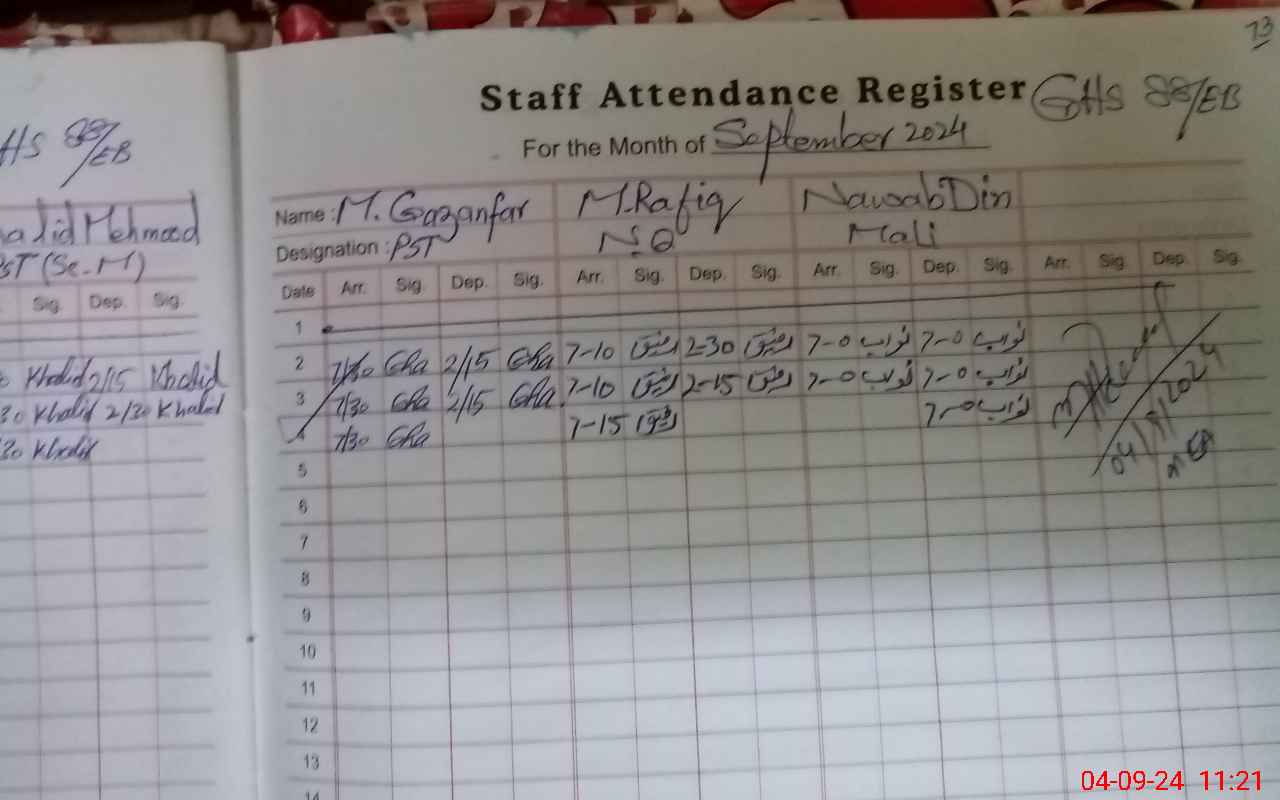 73
Staff Attendance Register GHS 88/EB
For the Month of September 2024
Name : M. Gazanfar M.Rafiq Nawab Din
Designation : PST N.Q Mali
Date Arr. Sig. Dep. Sig. Arr. Sig. Dep. Sig. Arr. Sig. Dep. Sig. Arr. Sig. Dep. Sig.
1
2 7/30 Gha 2/15 Gha 7-10 رفیق 2-30 رفیق 7-0 نواب 7-0 نواب
3 7/30 Gha 2/15 Gha 7-10 رفیق 2-15 رفیق 7-0 نواب 7-0 نواب
4 7/30 Gha 7-15 رفیق 7-0 نواب
04/9/2024
MEA
5
6
7
8
9
10
11
12
13
14
HS 88/EB
alid Mehmood
ST (Sc-M)
Sig. Dep. Sig.
Khalid 2/15 Khalid
30 Khalid 2/30 Khalid
30 Khalid
04-09-24 11:21